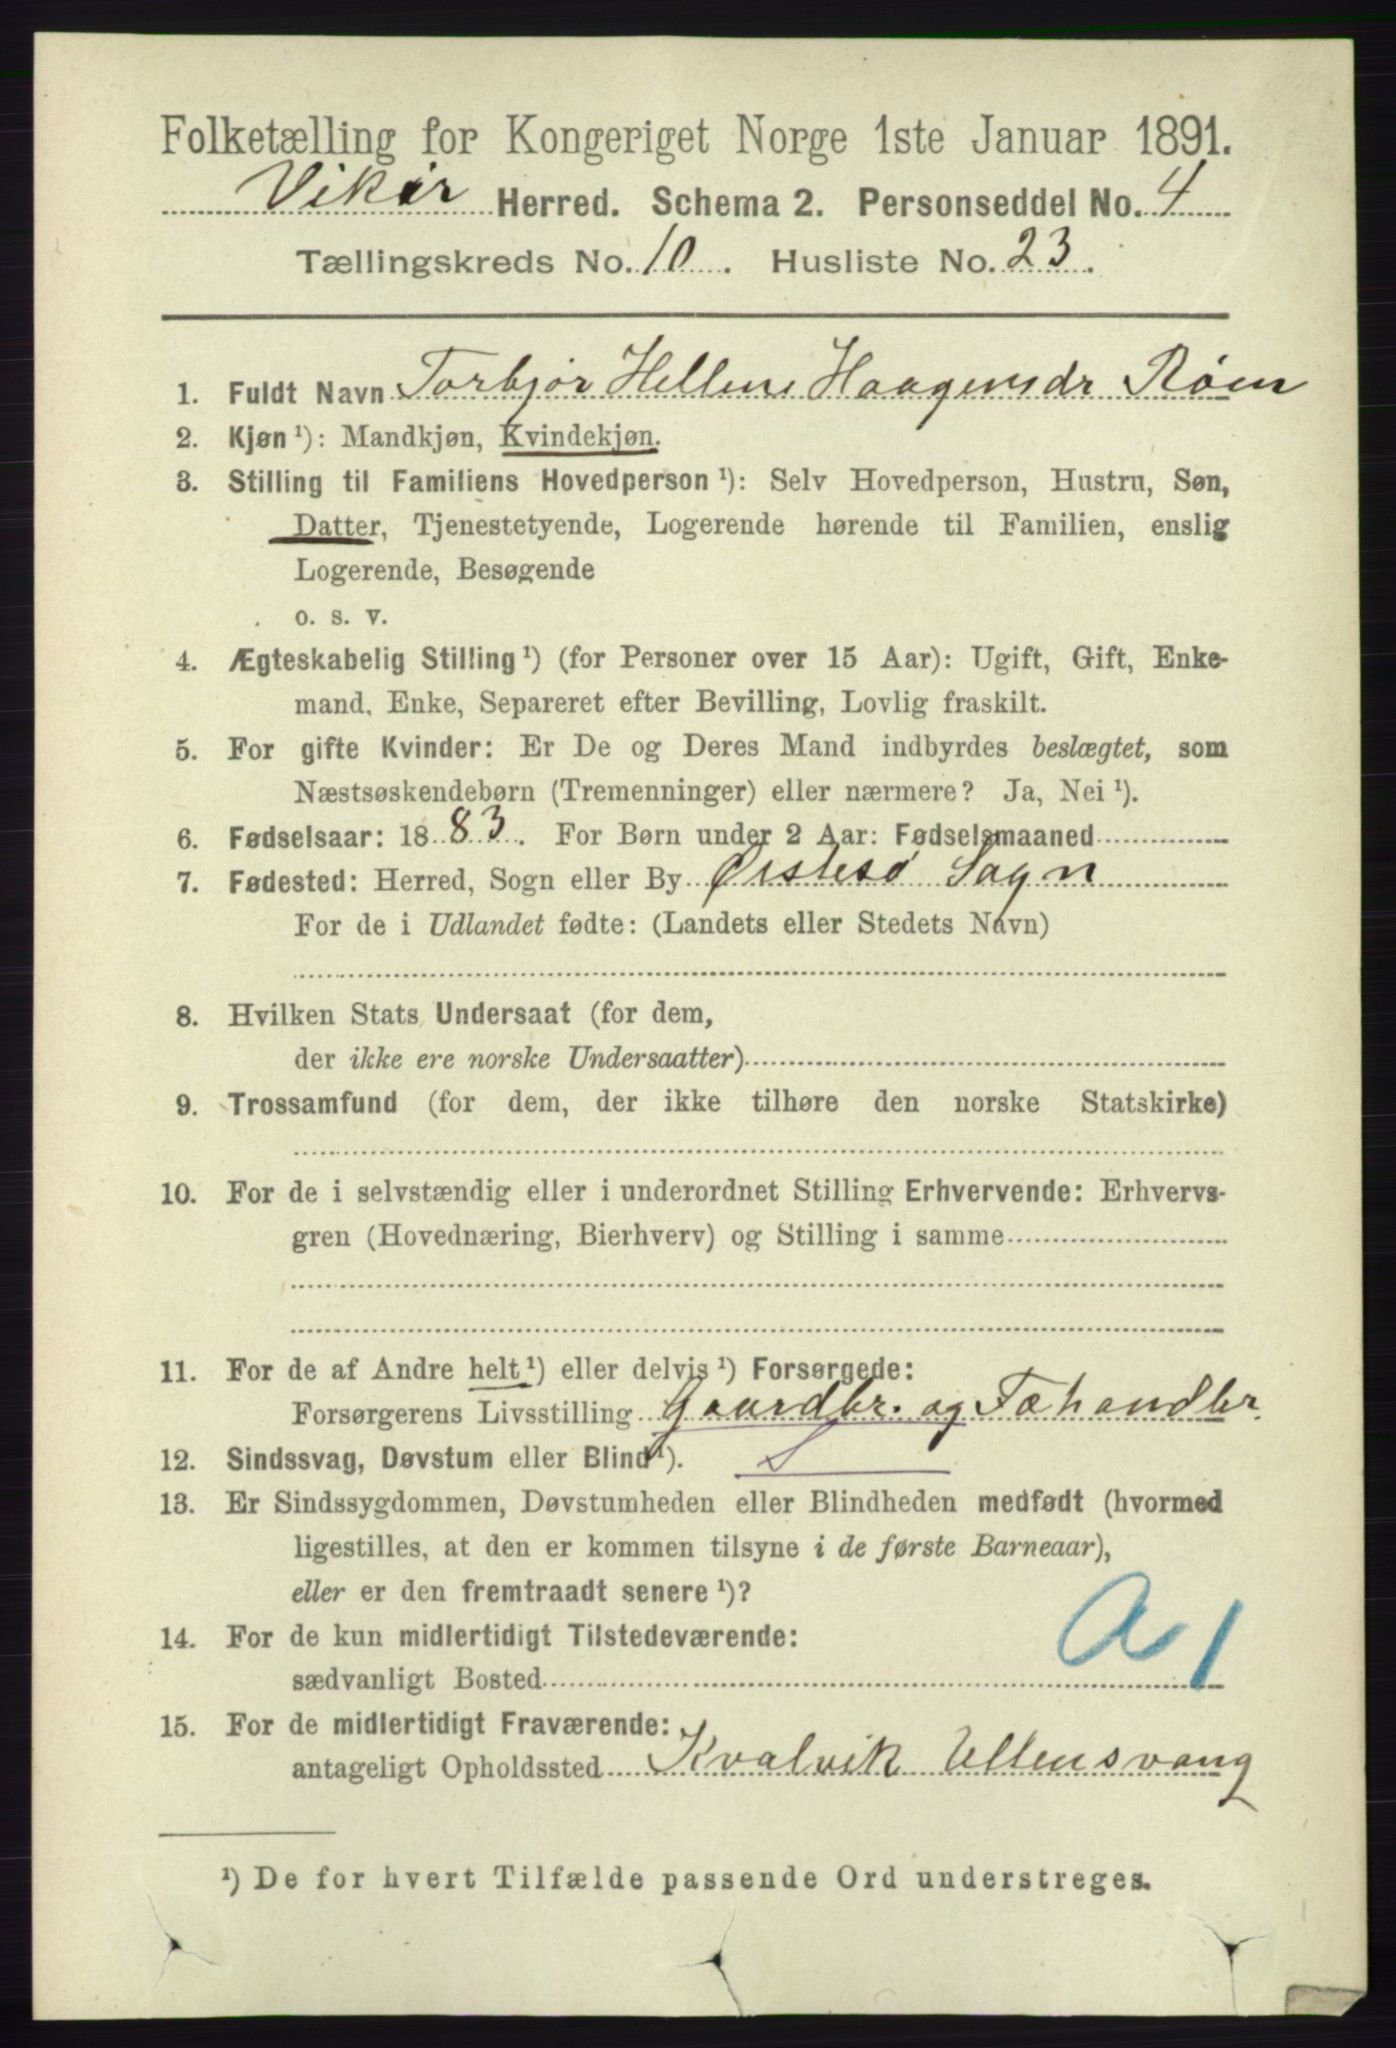 Folketælling for Kongeriget Norge 1ste Januar 1891.
Vikør Herred. Schema 2. Personseddel No. 4
Tællingskreds No. 10. Husliste No. 23.
1. Fuldt Navn Torbjør Hellene Haagensdr Røen
2. Kjøn ¹): Mandkjøn, Kvindekjøn.
3. Stilling til Familiens Hovedperson ¹): Selv Hovedperson, Hustru, Søn,
Datter, Tjenestetyende, Logerende hørende til Familien, enslig
Logerende, Besøgende
o. s. v.
4. Ægteskabelig Stilling ¹) (for Personer over 15 Aar): Ugift, Gift, Enke-
mand, Enke, Separeret efter Bevilling, Lovlig fraskilt.
5. For gifte Kvinder: Er De og Deres Mand indbyrdes beslægtet, som
Næstsøskendebørn (Tremenninger) eller nærmere? Ja, Nei ¹).
6. Fødselsaar: 1883. For Børn under 2 Aar: Fødselsmaaned
7. Fødested: Herred, Sogn eller By Østesø Sogn
For de i Udlandet fødte: (Landets eller Stedets Navn)
8. Hvilken Stats Undersaat (for dem,
der ikke ere norske Undersaatter)
9. Trossamfund (for dem, der ikke tilhøre den norske Statskirke)
10. For de i selvstændig eller i underordnet Stilling Erhvervende: Erhvervs-
gren (Hovednæring, Bierhverv) og Stilling i samme
11. For de af Andre helt ¹) eller delvis ¹) Forsørgede:
Forsørgerens Livsstilling Gaardbr. og Fæhandler
12. Sindssvag, Døvstum eller Blind ¹). S
13. Er Sindssygdommen, Døvstumheden eller Blindheden medfødt (hvormed
ligestilles, at den er kommen tilsyne i de første Barneaar),
eller er den fremtraadt senere ¹)?
14. For de kun midlertidigt Tilstedeværende:
sædvanligt Bosted
a 1
15. For de midlertidigt Fraværende:
antageligt Opholdssted Kvalvik Ullensvang
¹) De for hvert Tilfælde passende Ord understreges.